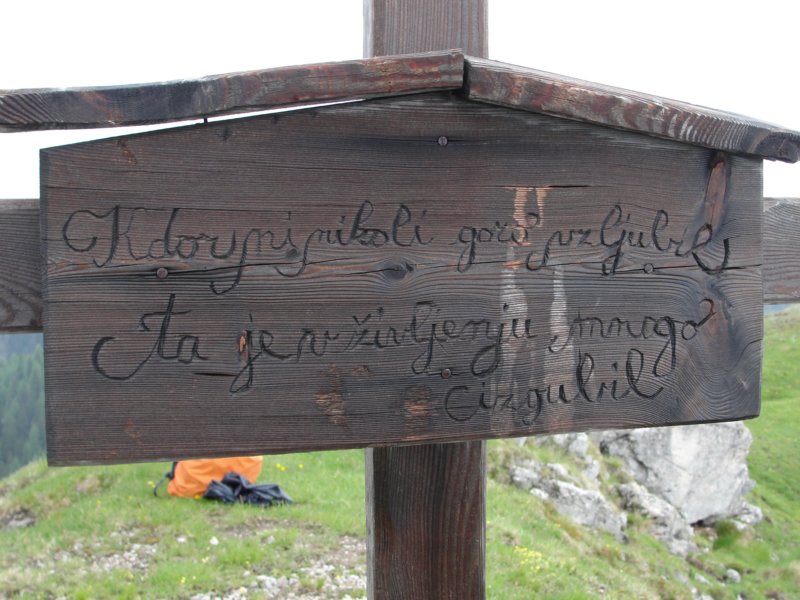 Kdor ni nikoli gorà vzljubil,
ta je v življenju mnogo
izgubil